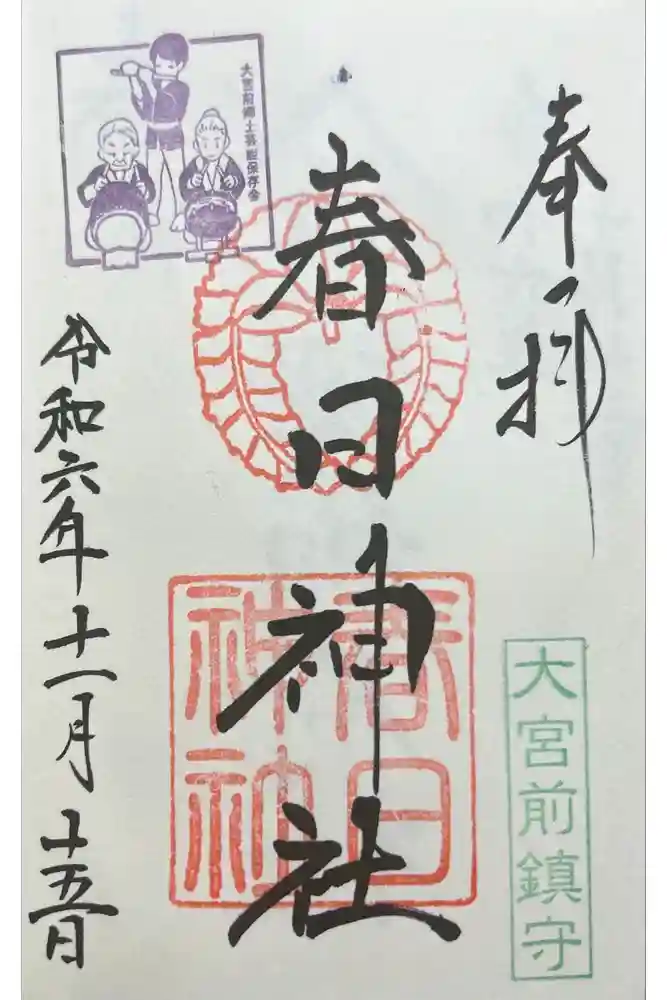 奉拝
大宮前鎮守
春日神社
春日
神社
大宮前郷土芸能保存会
令和六年十一月十五日